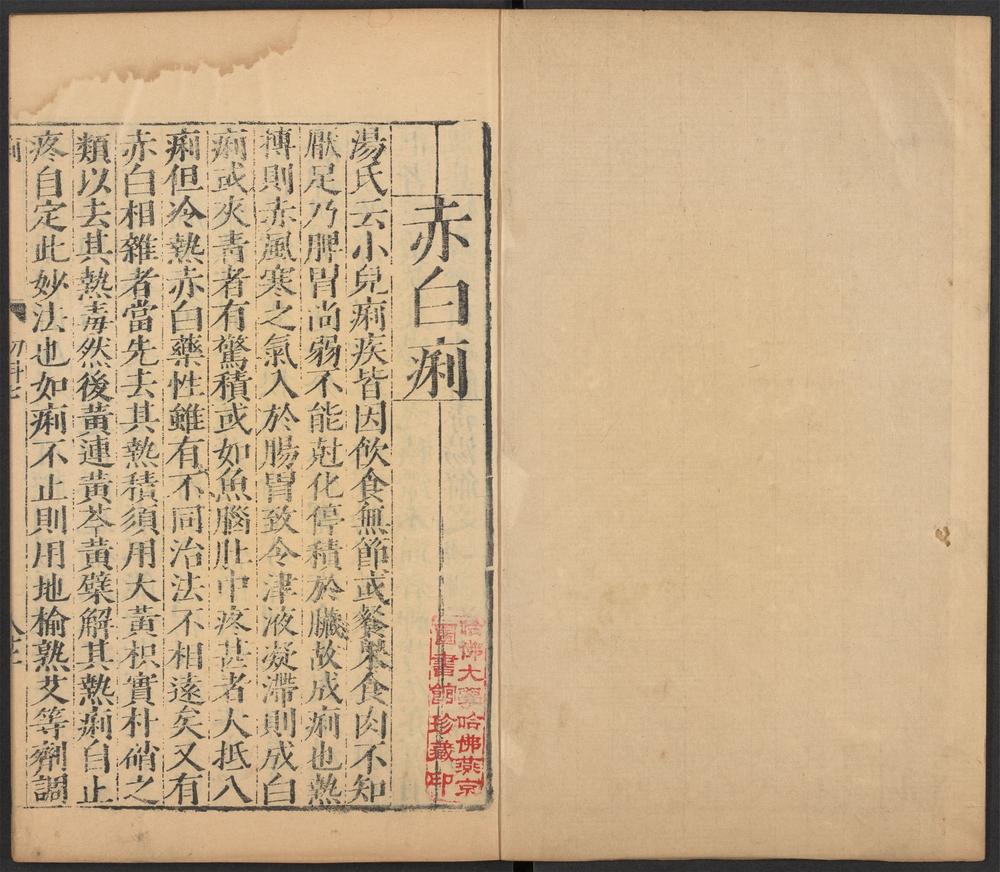 赤白痢
湯氏云小兒痢疾皆因飲食無節或餐菓食肉不知
厭足乃脾胃尚弱不能尅化停積於臟故成痢也熱
搏則赤風寒之氣入於腸胃致令津液凝滯則成白
痢或夾青者有驚積或如魚腦肚中疼甚者大抵八
痢但冷熱赤白藥性雖有不同治法不相遠矣又有
赤白相雜者當先去其熱積須用大黃枳實朴硝之
類以去其熱毒然後黃連黃芩黃蘗解其熱痢自止
疼自定此妙法也如痢不止則用地榆熟艾等劑調
痢
哈佛大學哈佛燕京
圖書館珍藏印